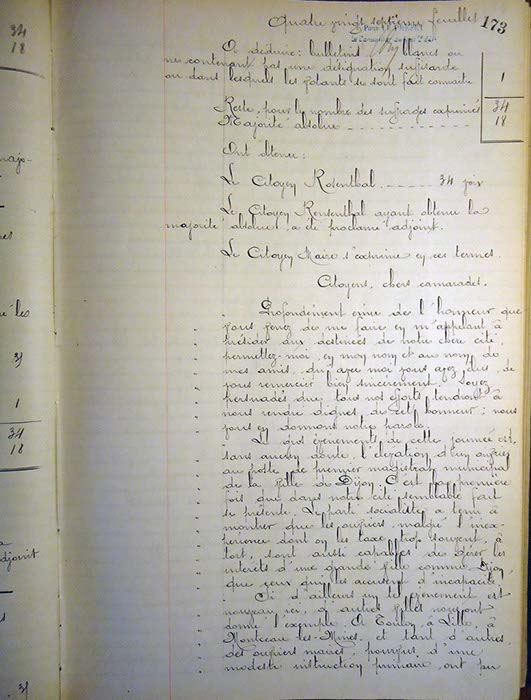 34
18
Quatre vingt septième feuillet
173
A déduire : bulletins blancs ou
ne contenant pas une désignation suffisante
ou dans lesquels les votants se sont fait connaître
1
Reste, pour le nombre des suffrages exprimés
34
Majorité absolue
18
Ont obtenu :
Le Citoyen Rosenthal 34 voix
Le Citoyen Rosenthal ayant obtenu la
majorité absolue a été proclamé adjoint.
Le Citoyen Maire s'exprime en ces termes.
Citoyens, chers camarades,
Profondément ému de l'honneur que
vous venez de me faire en m'appelant à
présider aux destinées de notre chère cité,
permettez-moi, en mon nom et au nom de
mes amis, de
vous remercier bien sincèrement. Soyez
persuadés que tous nos efforts tendront à
nous rendre dignes de cet honneur ; nous
vous en donnons notre parole.
Le gros événement de cette journée est,
sans aucun doute, l'élévation d'un ouvrier
au poste de premier magistrat municipal
de la ville de Dijon. C'est la première
fois que dans notre cité semblable fait
se présente. Le parti socialiste a tenu à
montrer que les ouvriers, malgré l'inex-
périence dont on les taxe trop souvent, à
tort, sont aussi capables de gérer les
intérêts d'une grande ville comme Dijon
que ceux qui les accusent d'incapacité.
Si d'ailleurs un tel événement est
nouveau ici, d'autres villes nous ont
donné l'exemple. A Toulon, à Lille, à
Montceau-les-Mines, et tant d'autres
des ouvriers maires, pourvus d'une
modeste instruction primaire, ont pu
majo-
é les
3)
1
34
18
adjoint
3)